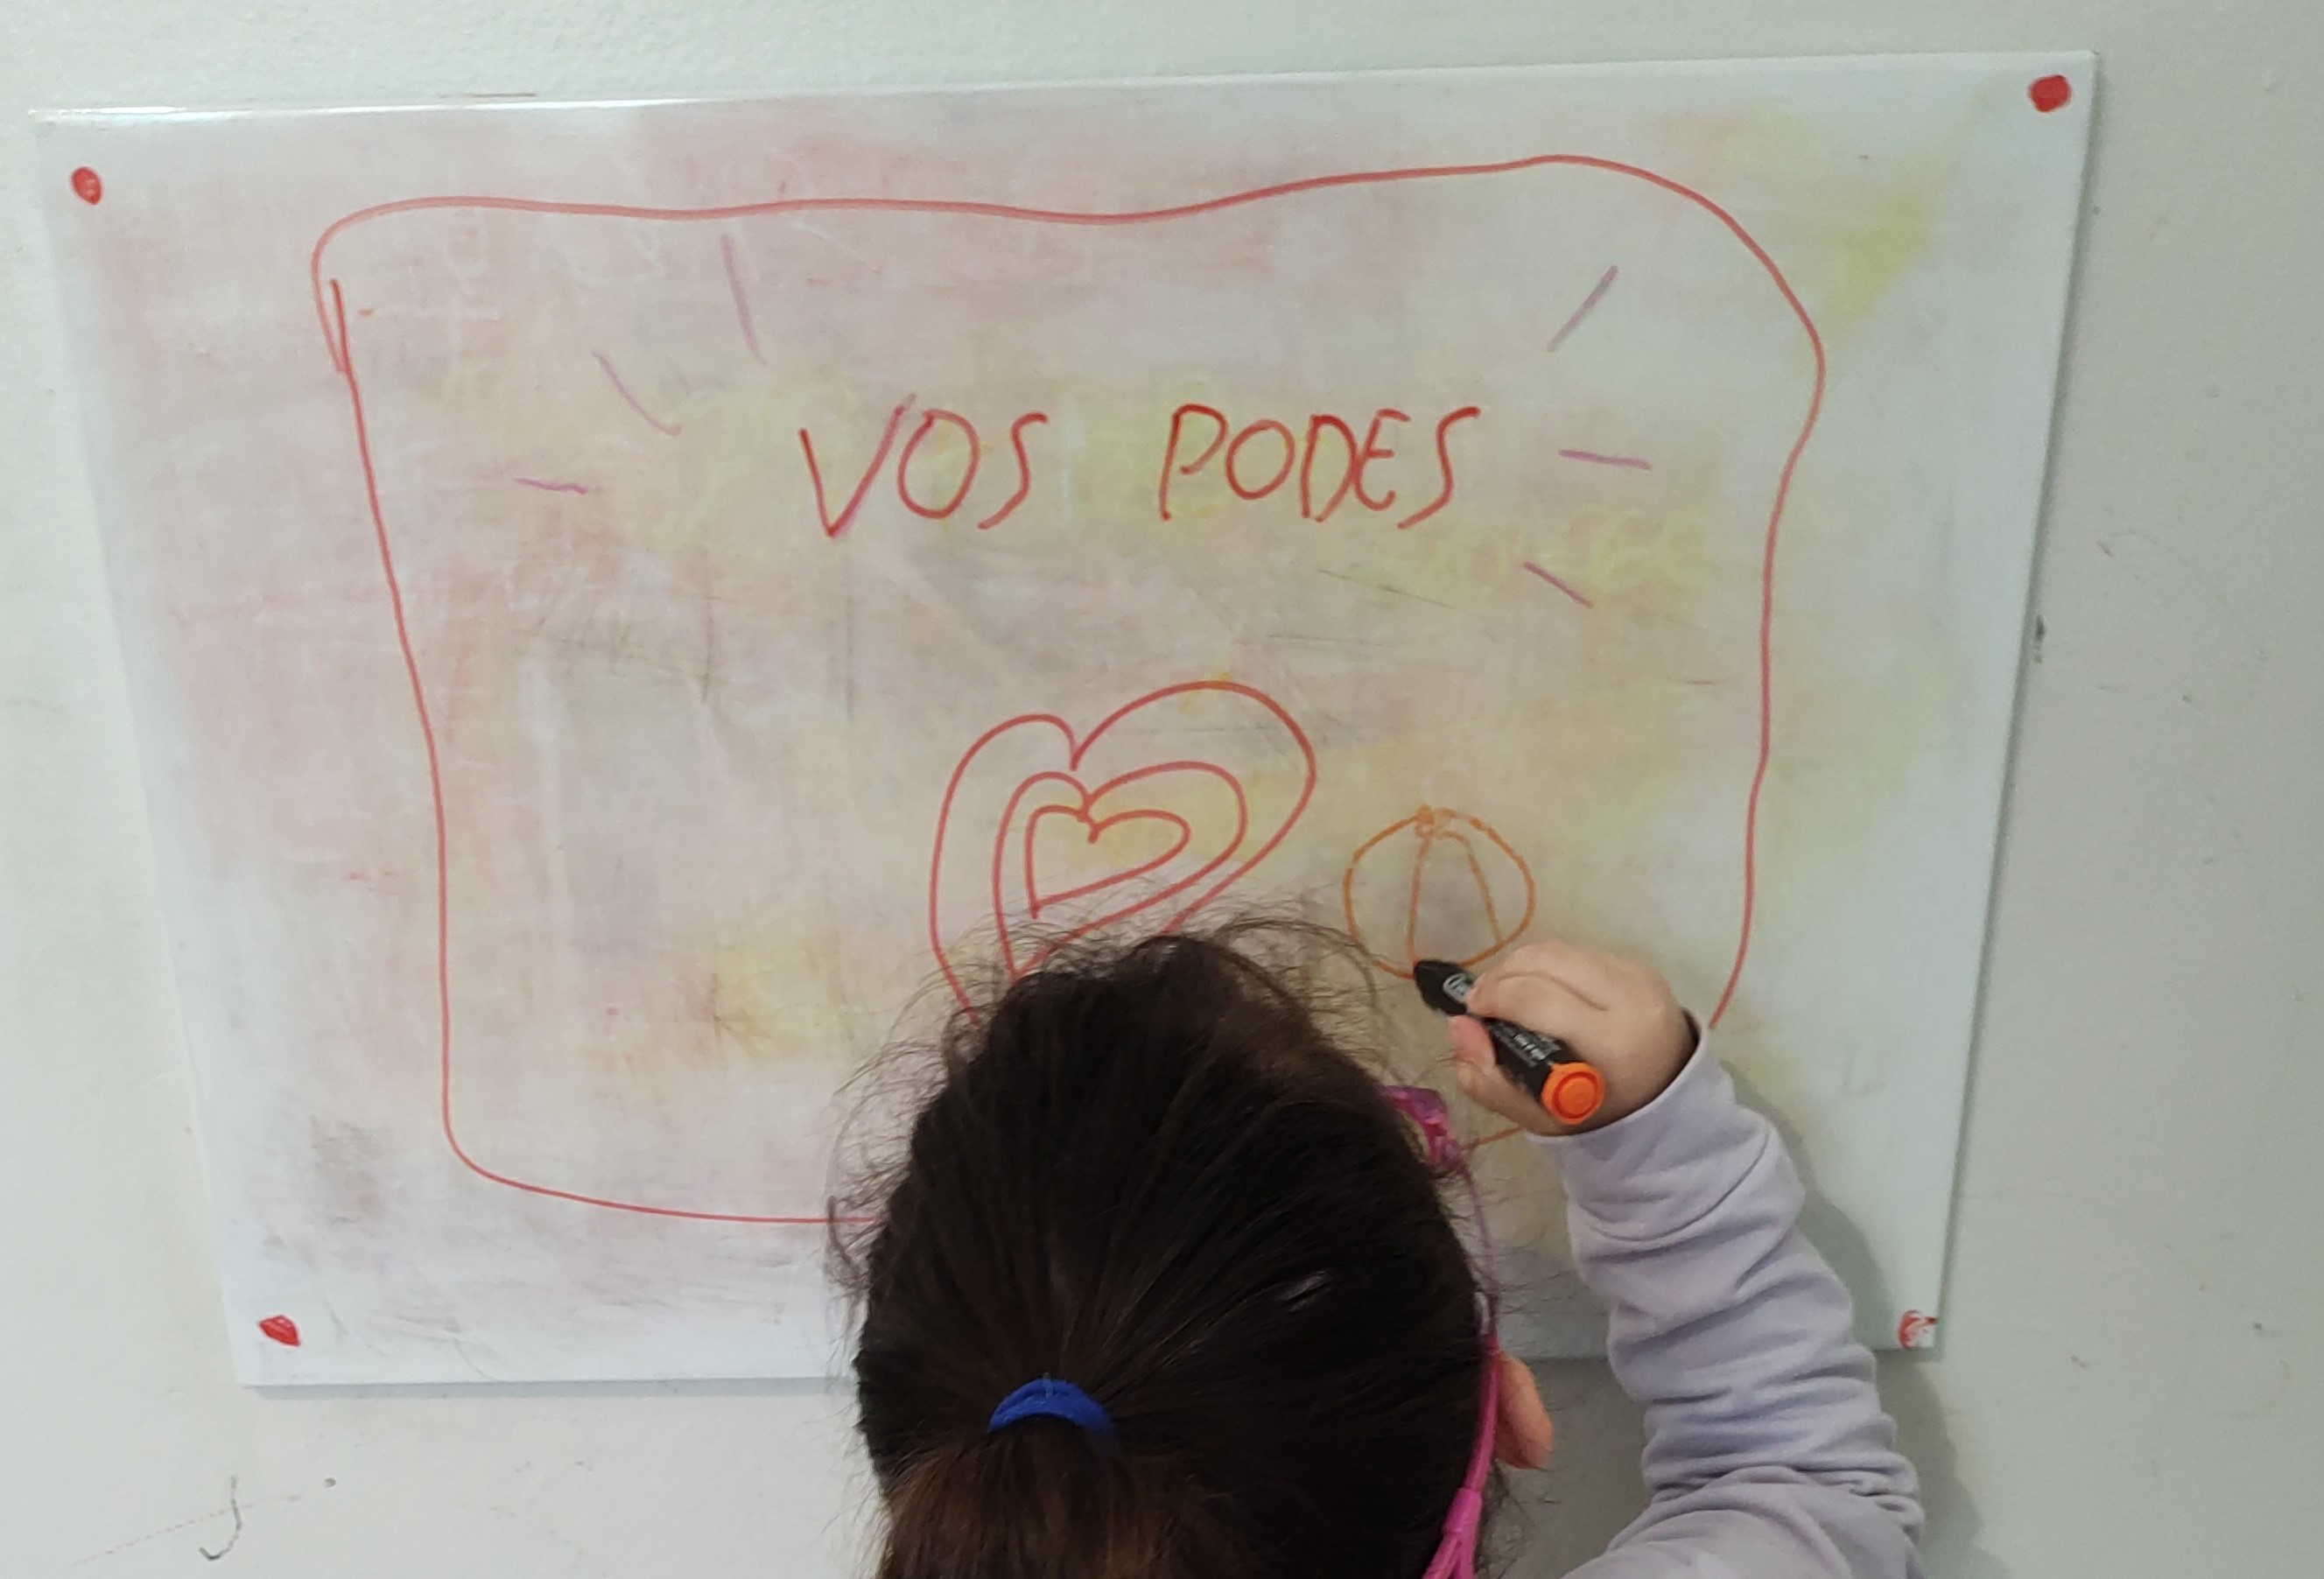 VOS PODES